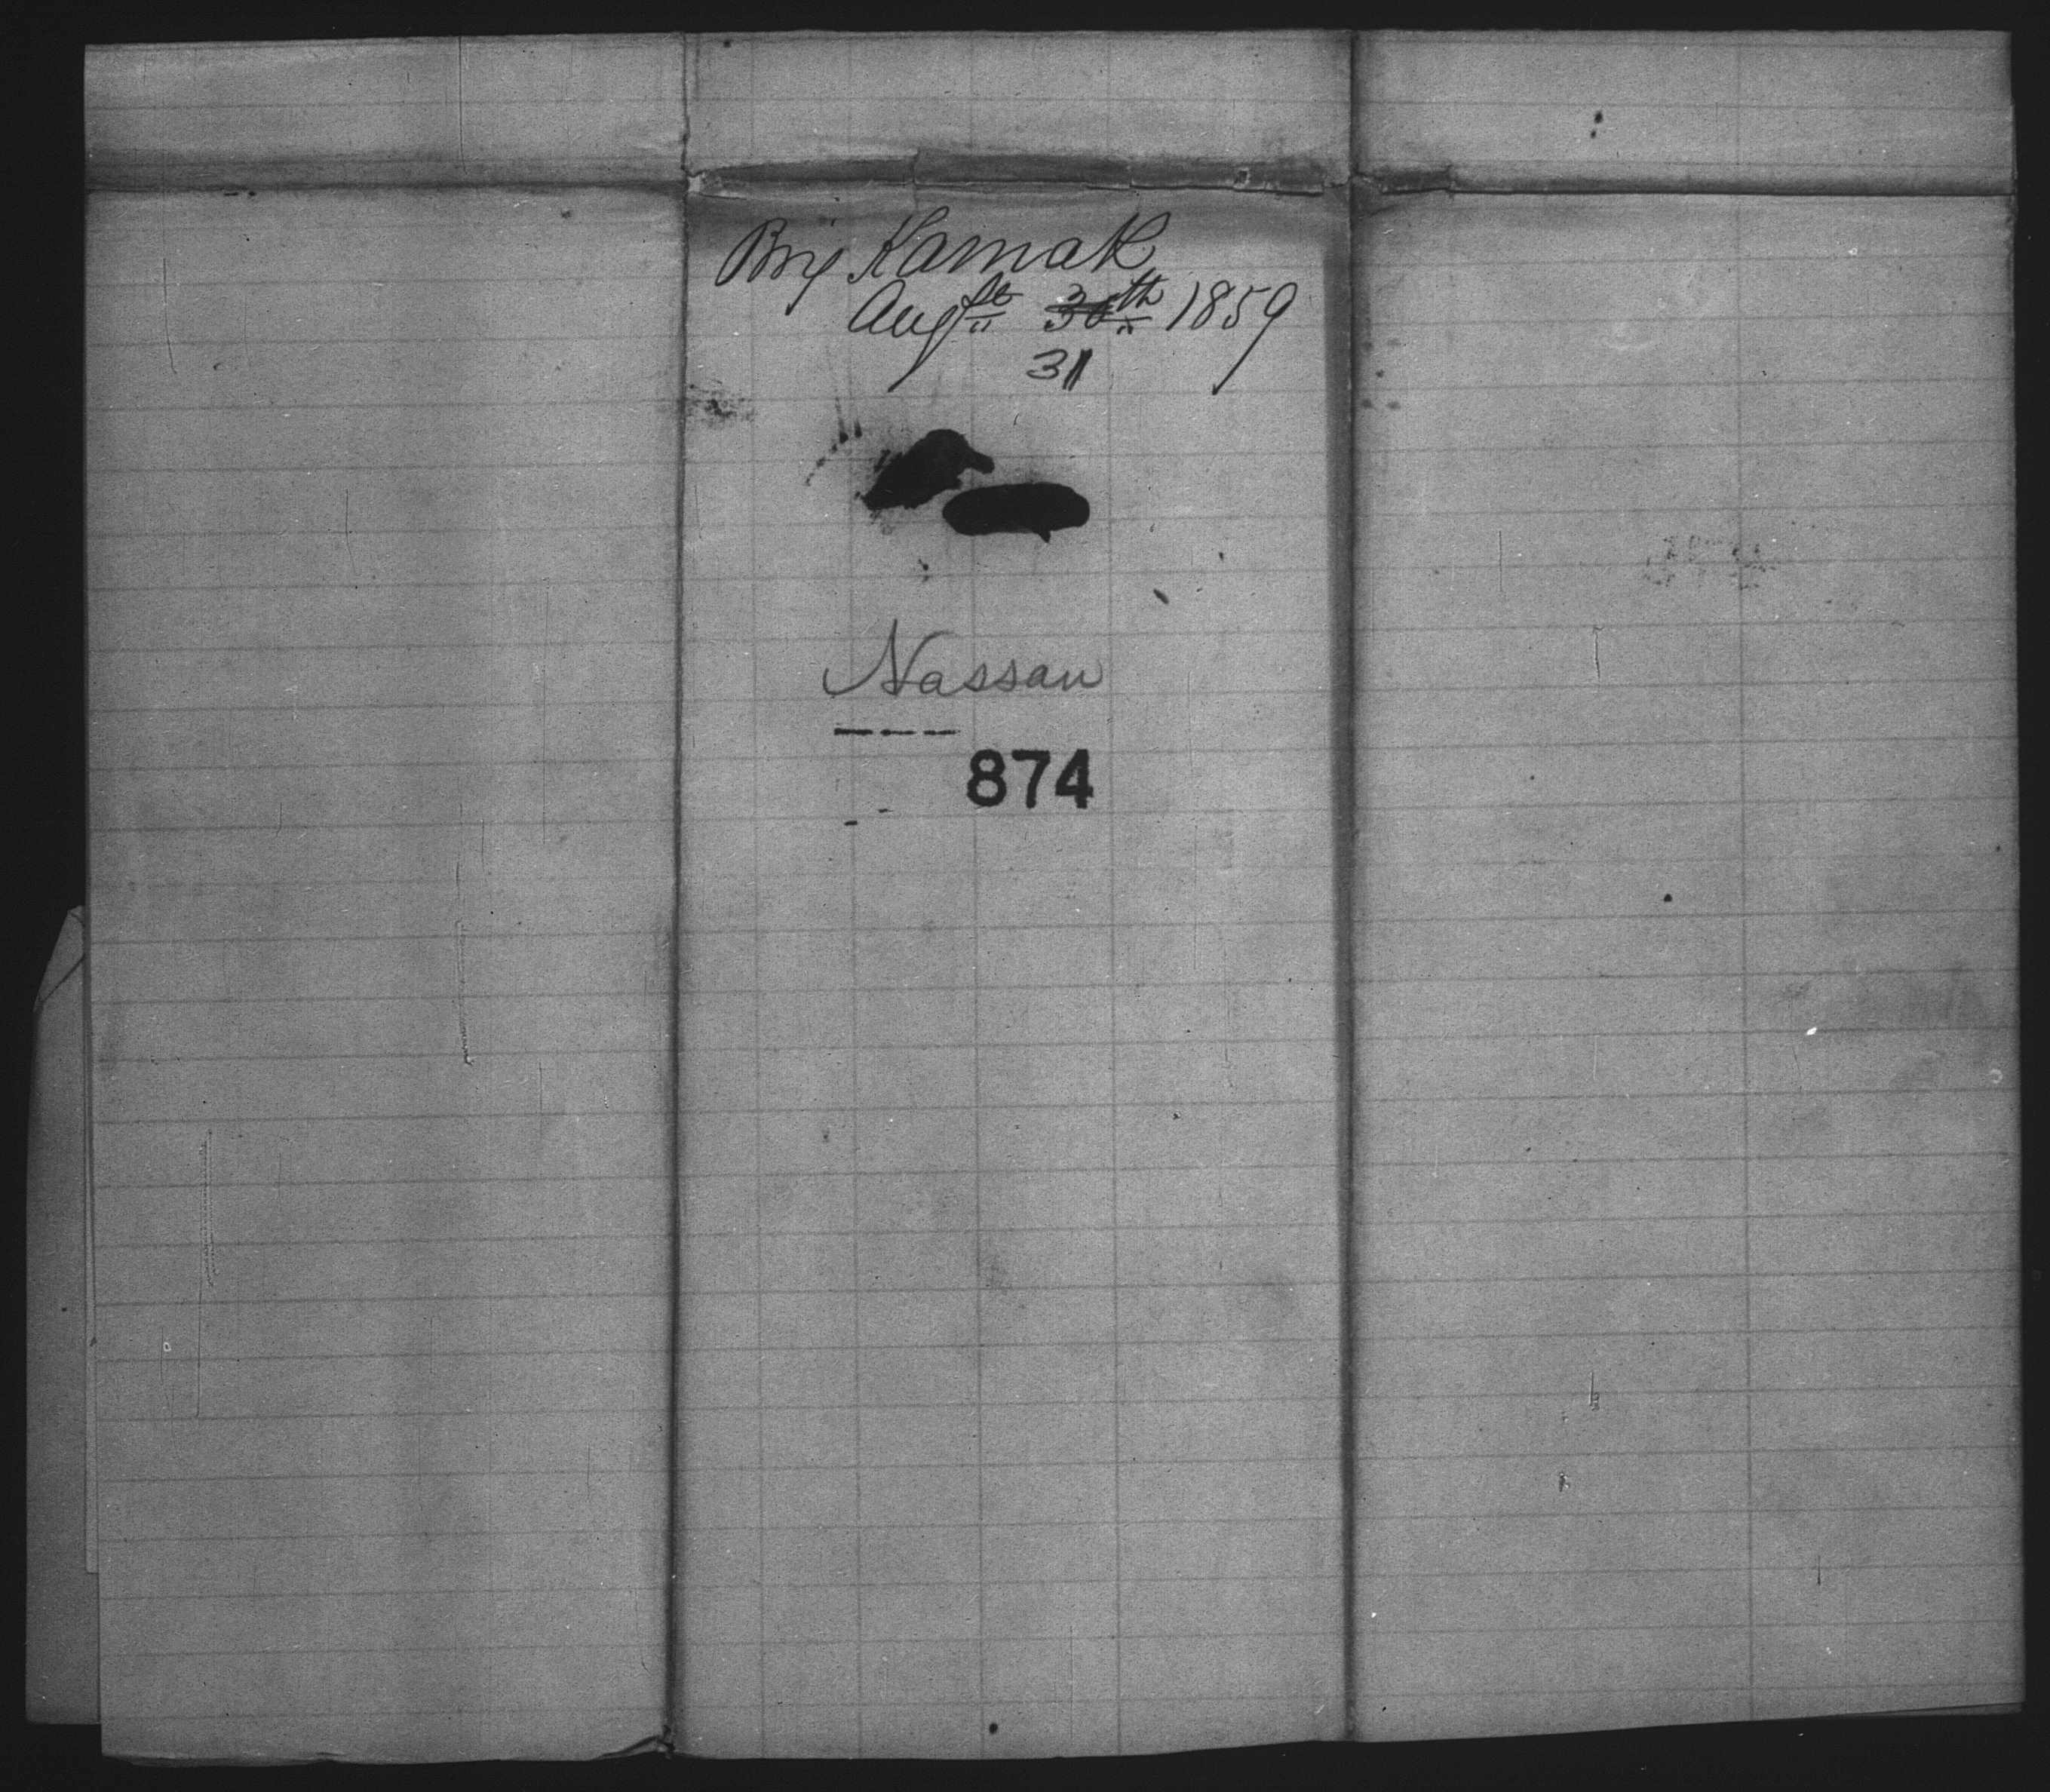 Brig Karnak
Augst 30th 1859
31
Nassau
874